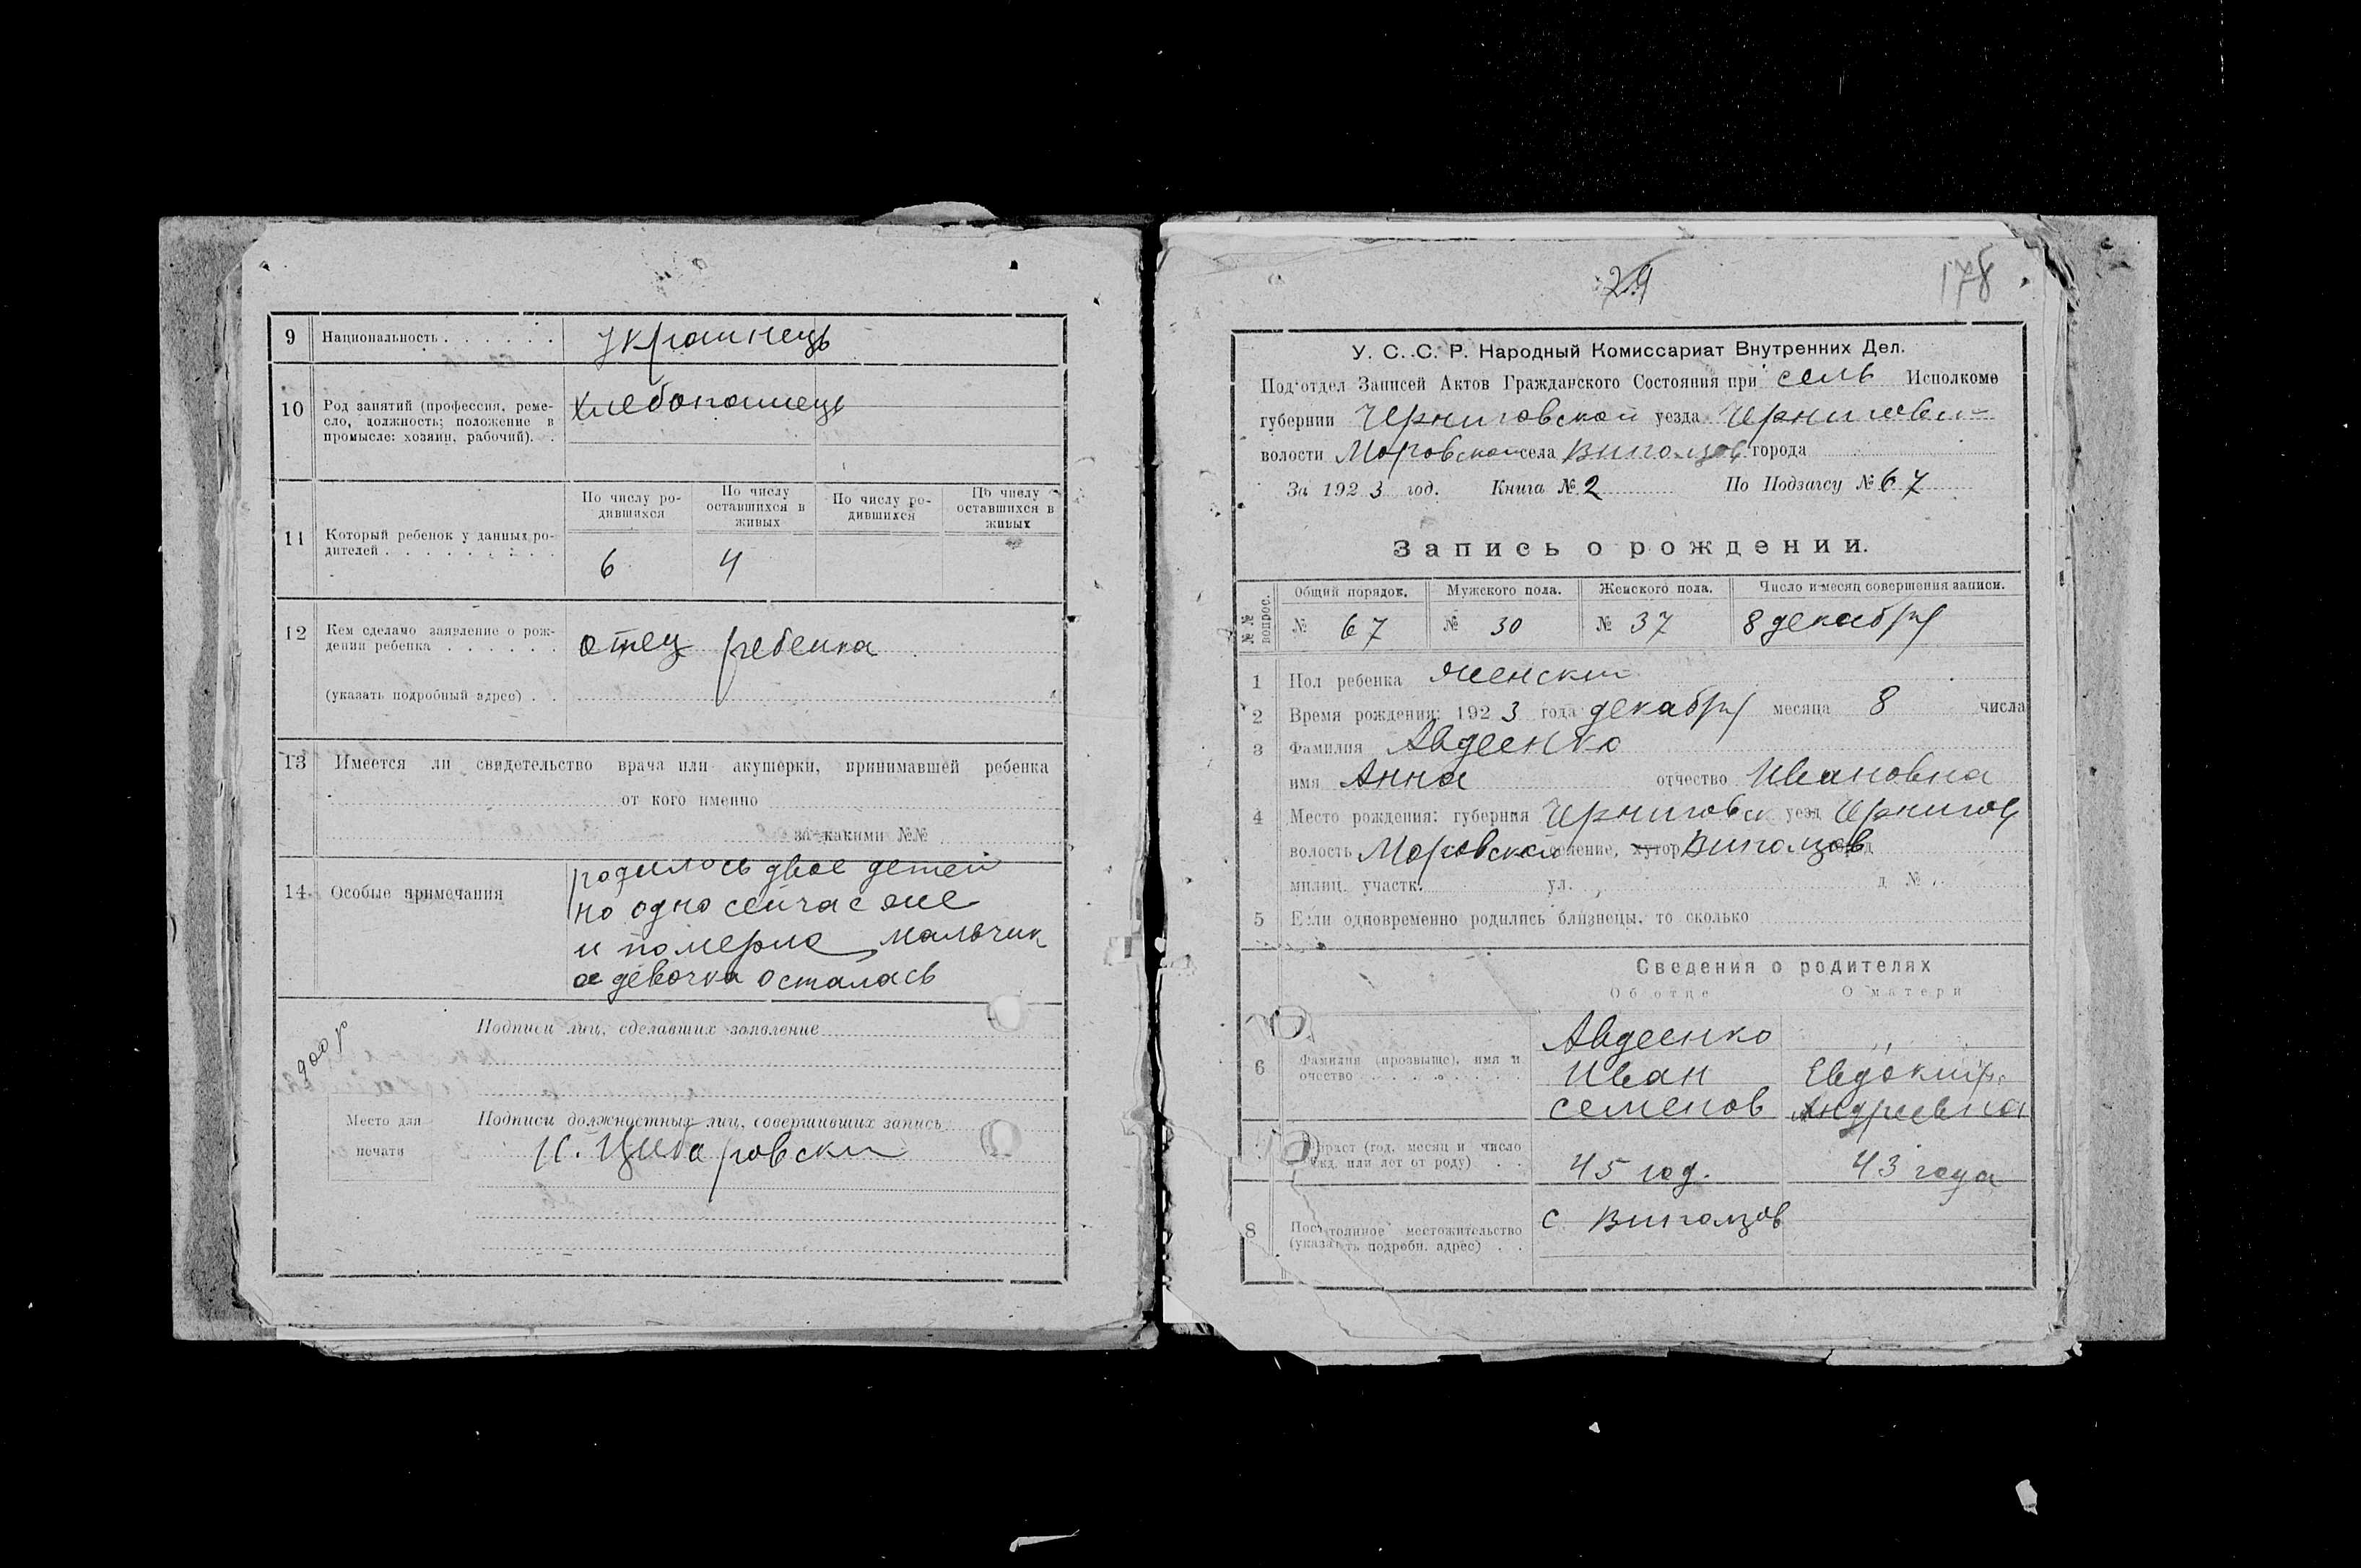 9 Национальность . . . . . . Украинець
10 Род занятий (профессия, реме-
сло, должность; положение в
промысле: хозяин, рабочий). .
Хлебопашець
11 Который ребенок у данных ро-
дителей . . . . . . . . .
По числу ро-
дившихся
По числу
оставшихся в
живых
По числу ро-
дившихся
По числу
оставшихся в
живых
6 4
12 Кем сделано заявление о рож-
дении ребенка . . . . . .
(указать подробный адрес) . .
отец ребенка
13 Имеется ли свидетельство врача или акушерки, принимавшей ребенка
от кого именно
за какими №№
14 Особые примечания
родилось двое детей
но одно сейчас же
и померло мальчик
а девочка осталась
Подписи лиц, сделавших заявление
Место для
печати
Подписи должностных лиц, совершивших запись
178
У. С. С. Р. Народный Комиссариат Внутренних Дел.
Под'отдел Записей Актов Гражданского Состояния при сель Исполкоме
губернии Черниговской уезда
волости Моровской села города
За 1923 год. Книга № 2 По Подзагсу № 67
Запись о рождении.
№ № вопрос.
Общий порядок. Мужского пола. Женского пола. Число и месяц совершения записи.
№ 67 № 30 № 37 8 декабря
1 Пол ребенка женский
2 Время рождения: 1923 года декабря месяца 8 числа
3 Фамилия Авдеенко
имя Анна отчество Ивановна
4 Место рождения: губерния Черниговск уезд Чернигов
волость Моровской селение, хутор
милиц. участк. ул. д №
5 Если одновременно родились близнецы, то сколько
Сведения о родителях
Об отце О матери
6 Фамилия (прозвище), имя и
очество . . . . . . . . .
Авдеенко „
Иван
Семенов Андреевна
Возраст (год, месяц и число
рожд. или лет от роду) . .
45 год. 43 года
8 Постоянное местожительство
(указать подробн. адрес) . .